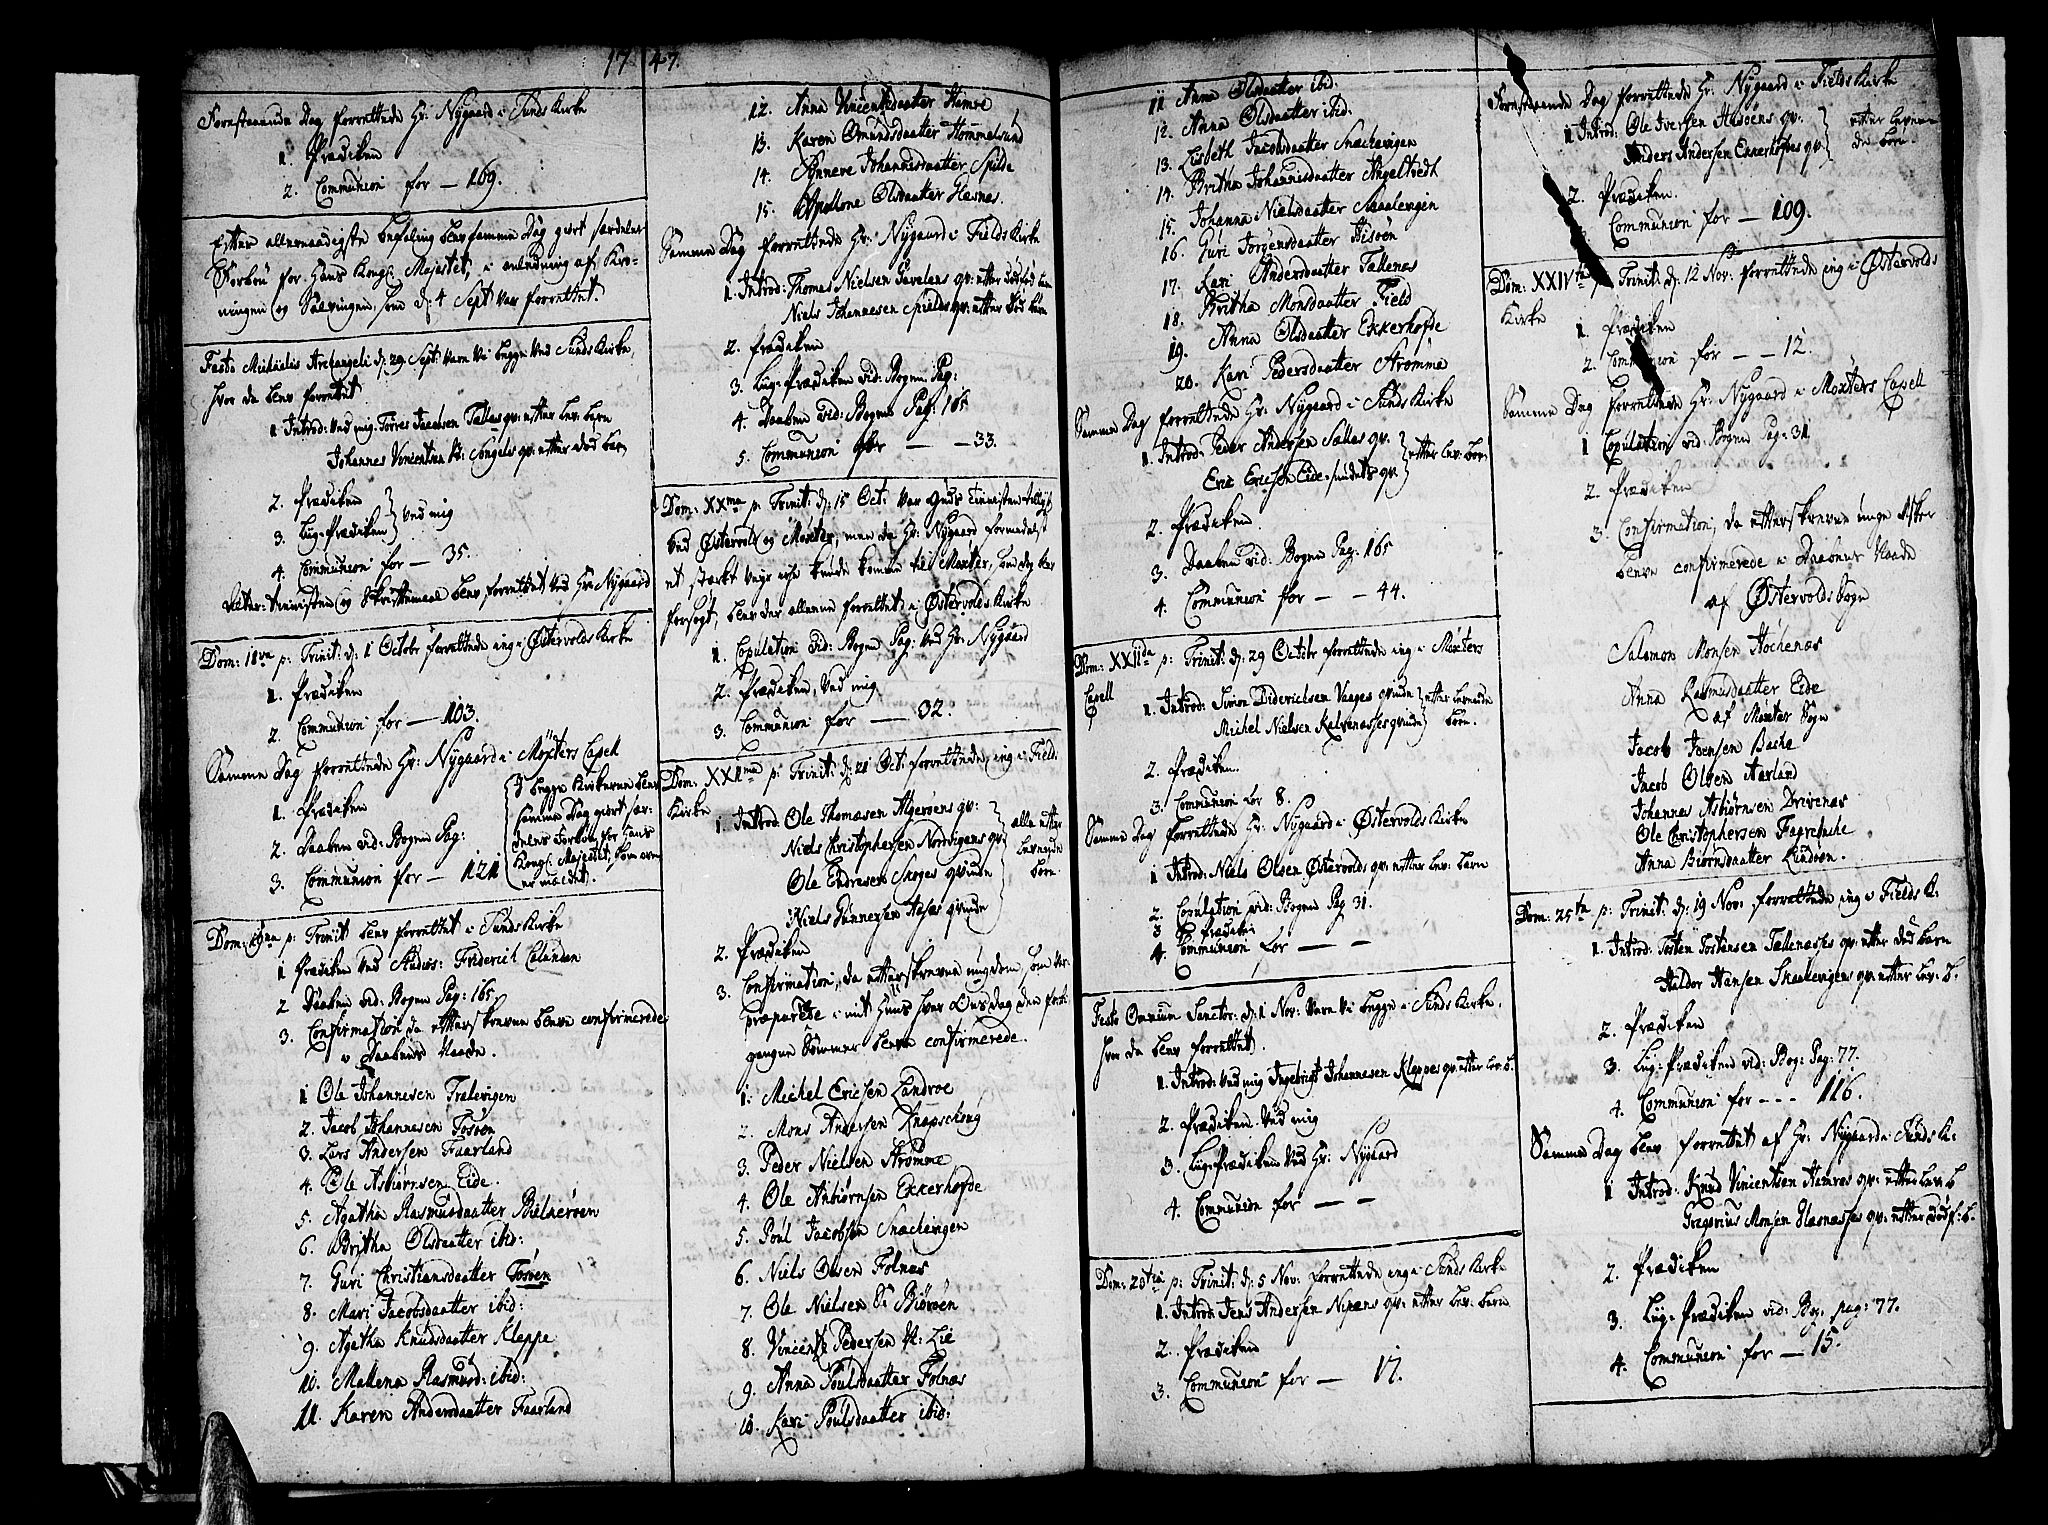 1747.
Fornstaaende Dag forrettede Hr: Nygaard i Sunds Kirke
1. Prædiken
2. Communion for — 169.
Efter allernaadigste befaling blev samme Dag giort særdeles
Forbön for Hans Kongl: Majestet, i anledning af Kro-
ningen og Salvingen, som d: 4 Sept var forrettet.
Festo Michaëlis Archangeli d: 29 Sept: vare vi begge ved Sunds Kirke,
hvor da blev forrettet
1. Introd: ved mig Torres Jacobsen Tællæs qv: efter lev: barn
Johannes Vincentsen qv: efter död barn
2. Prædiken
3. Liig-Prædiken } ved mig
4. Communion for — 35.
og Skriftemaal blev forrettet ved Hr: Nygaard
Dom: 18va p: Trinit: d: 1 Octobr forrettede ieg i Østervolds Kirke
1. Prædiken
2. Communion for — 103.
Samme Dag forrettede Hr: Nygaard i Møxters Capell
1. Prædiken
2. Daaben vid: Bogen Pag:
3. Communion for — 121
I begge Kirkerne blev
samme Dag giort sær-
deles Forbön for Hans
Kongl: Majestet, som oven
er meldet.
Dom: 19na p: Trinit: blev forrettet i Sunds Kirke
1 Prædiken ved Studios: Friderich
2 Daaben vid: Bogen Pag: 165
3. Confirmation, da efterskrevne bleve confirmerede
i Daabens Naade.
1 Ole Johannesen Trælevigen
2. Jacob Johannesen Tosöen
3. Lars Andersen Faarland
4. Ole Asbiörnsen Eide.
5. Agatha Rasmusdaatter Bielkeröen
6. Britha Olsdaatter ibid:
7. Guri Christiansdaatter Tosöen
8. Mari Jacobsdaatter ibid:
9. Agatha Knudsdaatter Kleppe
10. Mallena Rasmusd: ibid:
11. Karen Andersdaatter Faarland
12. Anna Vincentsdaatter Hamre
13. Karen Omundsdaatter Hommelsund
14. Synneve Johannisdaatter Spilde
15. Apollone Olsdaatter Glesnes.
Samme Dag forrettede Hr: Nygaard i Fields Kirke
1. Introd: Thomas Nielsen qv: efter barn
Niels Johannesen Spieldes qv: efter död barn
2. Prædiken
3. Liig-Prædiken vid: Bogen Pag:
4. Daaben vid: Bogen Pag: 165
5. Communion for — — 33.
Dom: XXma p: Trinit: d: 15 Oct: var Guds tieneste
ved Østervold og Møxter, men da Hr: Nygaard formedelst
et stærkt veyr icke kunde komme til Møxter, som dog var
forsögt, blev der allene forrettet i Østervolds Kirke
1. Copulation vid: Bogen Pag: ved Hr: Nygaard
2. Prædiken, ved mig
3. Communion for — 32.
Dom: XXIma p: Trinit: d: 21 Oct: forrettede ieg i Field.
Kirke
1. Introd: Ole Thomæsen Algeröens qv:
Niels Christophersen Nordvigens qv:
Ole Endresen Skoges qvinde
Niels Gunnersen qvinde
alle efter
levende
born.
2. Prædiken
3. Confirmation, da efterskrevne ungdom, som var
præparede i mit Huus hver Onsdag den forbi-
gangne Sommer bleve confirmerede.
1. Michel Ericsen Landroe
2. Mons Andersen Knapschoug
3. Peder Nielsen Strömme
4. Ole Anbiörnsen Ekkerhofde
5. Poul Jacobsen Snachevigen
6. Niels Olsen Folnæs
7. Ole Nielsen St: Biöröen
8. Vincents Pedersen St: Lie
9. Anna Poulsdaatter Folnæs
10. Kari Poulsdaatter ibid:
11 Anna Olsdaatter ibid:
12. Anna Olsdaatter ibid:
13. Lisbeth Jacobsdaatter Snachevigen
14. Britha Johannisdaatter Angeltvedt
15. Johanna Nielsdaatter Skaalevigen
16. Guri Jorgensdaatter Tisöen
17. Kari Andersdaatter Tællenæs
18. Britha Monsdaatter Field
19. Anna Olsdaatter Ekkerhofde
20. Kari Pedersdaatter Strömme
Samme Dag forrettede Hr: Nygaard i Sunds Kirke
1. Introd: Peder Andersen qv:
Eric Ericsen Eide-sundets qv: } efter lev: börn
2. Prædiken
3. Daaben vid: Bogen Pag: 165
4. Communion for — — 44.
Dom: XXIIda p: Trinit: d: 29 Octobr forrettede ieg i Møxters
Capell
1. Introd: Simon Diderichsen Vaages qvinde
Michel Nielsen Kalvenæsses qvinde } efter levende börn.
2. Prædiken.
3. Communion for 8.
Samme Dag forrettede Hr: Nygaard i Østervolds Kirke
1 Introd: Niels Olsen Østervolds qv: efter lev: barn
2. Copulation vid: Bogen Pag 31.
3 Prædiken
4. Communion for — —
Festo Omnium Sanctor: d: 1 Nov: vare vi begge i Sunds Kirke,
hvor da blev forrettet.
1. Introd: ved mig Ingebrigt Johannesen Kleppes qv: efter lev: b.
2. Prædiken ved mig
3. Liig-Prædiken ved Hr: Nygaard
4. Communion for — —
Dom: 23tia p: Trinit: d: 5 Nov: forrettede ieg i Sunds Kirke
1. Introd: Jens Andersen Nipens qv: efter lev: barn
2. Prædiken
3. Communion for — 17.
Fornstaaende Dag forrettede Hr: Nygaard i Fields Kirke
1 Introd: Ole Iversen qv:
Anders Andersen Ekkerhofdes qv: } efter levende börn.
2. Prædiken.
Communion for — 109.
Dom: XXIVta p: Trinit: d: 12 Nov: forrettede ieg i Østervolds
Kirke
1. Prædiken
2. Communion for — — 12.
Samme Dag forrettede Hr: Nygaard i Møxters Capell
1 Copulation vid: Bogen Pag: 31
2. Prædiken
3. Confirmation, da efterskrevne unge
bleve confirmerede i Daabens Naade
af Østervolds Sogn
Salomon Monsen Höchenæs
Anna Rasmusdaatter Eide
af Møxter Sogn
Jacob Joensen Bache
Jacob Olsen Aarland
Johannes Asbiörnsen Drivenæs
Ole Christophersen Fagrebache
Anna Biörnsdaatter Lunöen.
Dom: 25ta p: Trinit: d: 19 Nov: forrettede ieg i Fields K.
1. Introd: Tosten Tostensen Tællenæsses qv: efter död barn
Haldor Hansen Skaalevigens qv: efter lev: b.
2. Prædiken
3. Liig-Prædiken vid: Bog: Pag: 77.
4. Communion for - - - 116.
Samme Dag blev forrettet af Hr: Nygaard i Sunds K:
1 Introd: Knud Vincentsen Hamres qv: efter lev: b
Gregorius Monsen Glesnæsses qv: efter dödf: b.
2. Prædiken
3. Liig-Prædiken vid: Bog: pag: 77.
4. Communion for — 15.